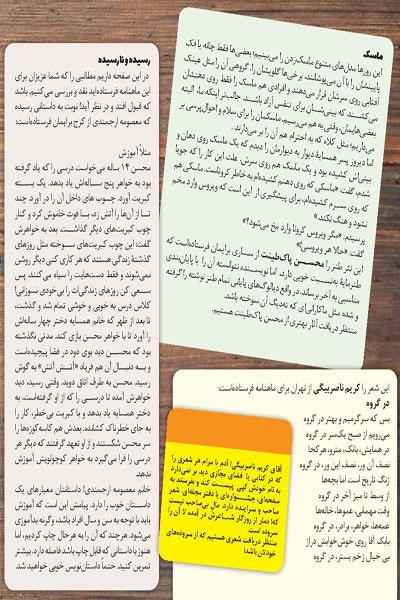 ماسک
این روزها مدل‌های متنوع ماسک‌زدن را می‌بینیم؛ بعضی‌ها فقط چانه یا فک
پایینشان را با آن می‌پوشانند، برخی‌ها گلویشان را. گروهی آن را مثل عینک
آفتابی روی سرشان قرار می‌دهند و افرادی هم ماسک را فقط روی دهنشان
می‌کشند که بینی‌شان برای تنفس آزاد باشد. جالب‌تر اینکه ما، البته
بعضی‌هایمان، وقتی به هم می‌رسیم، ماسکمان را برای سلام و احوال‌پرسی بر
می‌داریم؛ مثل کلاه که به احترام هم آن را بر می‌دارند.
اما دیروز پسر همسایهٔ دیوار به دیوارمان را دیدم که یک ماسک روی دهان و
بینی‌اش کشیده بود و یک ماسک هم روی سرش. علت این کار را که جویا
شدم، گفت: «ماسکی که روی دهنم کشیده‌ام به خاطر کروناست. ماسکی هم
که روی سرم کشیده‌ام، برای پیشگیری از این است که ویروس وارد مخم
نشود و هنگ نکند.»
پرسیدم: «مگر ویروس کرونا وارد مخ می‌شود؟»
گفت: «حالا هر ویروسی!»
این نثر طنز را محسن پاک‌طینت از ساری برایمان فرستاده‌است که
طنزمایهٔ به‌نسبت خوبی دارد. اما نویسنده نتوانسته آن را با پایان‌بندی
مناسبی به آخر برساند. در واقع دیالوگ‌های پایانی تمام طنز نوشته را گرفته
و شده مثل ماکارانی‌ای که ته‌دیگ آن سوخته باشد.
منتظر دریافت آثار بهتری از محسن پاک‌طینت هستیم.
این شعر را کریم ناصربیگی از تهران برای ماهنامه فرستاده‌است:
در گروه
بس که سرگرمیم و بهتر در گروه
می‌رویم از صبح یک‌سر در گروه
در همایش، بانک، مترو، هرکجا
نصف آن ور، نصف این ور، در گروه
زنگ تاریخ است اما بچه‌ها
از وسط تا میز آخر در گروه
وقت مهمانی، عموها، خاله‌ها
عمه‌ها، خواهر، برادر، در گروه
بابک آقا روی خوش‌خوابش دراز
بی خیال زخم بستر، در گروه
آقای کریم ناصربیگی! آدم با مرام هر شعری را
که در کتابی یا فضای مجازی دید بر نمی‌دارد
به نام خودش کپی پیست کند و بفرستد به
صفحه‌ای، جشنواره‌ای یا دفتر مجله‌ای. شعر
صاحب و سراینده دارد. مال بی‌صاحب نیست
که! دمار از روزگار شاعرش در آمده تا آن را
سروده است.
منتظر دریافت شعری هستیم که از سروده‌های
خودتان باشد!
رسیده و نارسیده
در این صفحه داریم مطالبی را که شما عزیزان برای
این ماهنامه فرستاده‌اید نقد و بررسی می‌کنیم. باشد
که قبول افتد و در نظر آید! نوبت به داستانی رسیده
که معصومه ارجمندی از کرج برایمان فرستاده‌است:
مثلاً آموزش
محسن ۱۴ ساله می‌خواست درسی را که یاد گرفته
بود به خواهر پنج ساله‌اش یاد بدهد. یک بسته
کبریت آورد. چوب‌های داخل آن را در آورد. چند
تا از آن‌ها را آتش زد، با فوت خاموش کرد و کنار
چوب کبریت‌های دیگر گذاشت. بعد به خواهرش
گفت: این چوب کبریت‌های سوخته مثل روزهای
گذشتهٔ زندگی هستند که هر کاری کنی دیگر روشن
نمی‌شوند و فقط دست‌هایت را سیاه می‌کنند. پس
سعی کن روزهای زندگی‌ات را بی‌خودی نسوزانی!
کلاس درس به خوبی و خوشی تمام شد و گذشت،
تا بعد از ظهر که خانم همسایه دختر چهار ساله‌اش
را آورد تا با خواهر محسن بازی کند. مدتی نگذشته
بود که محسن دید بوی دود در فضا پیچیده‌است
و به دنبال آن هم فریاد «آتش آتش» به گوش
رسید. محسن به طرف اتاق دوید. وقتی رسید، دید
خواهرش آمده تا درسی را که از او گرفته‌است، به
دختر همسایه یاد بدهد و با کبریت بی‌خطر، کار را
به جای خطرناک کشانده. بعدش هم کاسه‌کوزه‌ها را
سر محسن شکستند و از او تعهد گرفتند که دیگر هر
درسی را فرا می‌گیرد به خواهر کوچولویش آموزش
ندهد.
خانم معصومه ارجمندی! داستانتان معیارهای یک
داستان خوب را دارد. پیامش این است که آموزش
باید با توجه به سن و سال افراد باشد، وگرنه بدآموزی
می‌شود. هرچند که آن را به هر حال چاپ کردیم، اما
هنوز با داستانی که قابل چاپ باشد فاصله دارد. بیشتر
تمرین کنید. حتماً داستان‌نویس خوبی خواهید شد.